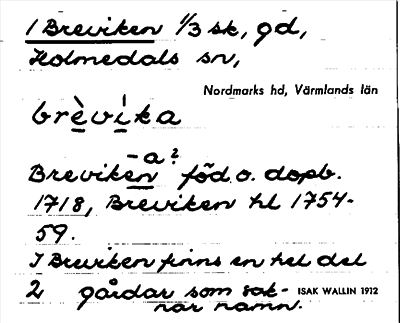 1 Breviken 1/3 sk, gd,
Holmedals sn,
Nordmarks hd, Värmlands län
brèvika
-a?
Breviken född o. döpt.
1718, Breviken hl 1754-
59.
I Breviken finns en hel del
2 gårdar som sak-
nar namn.
ISAK WALLIN 1912